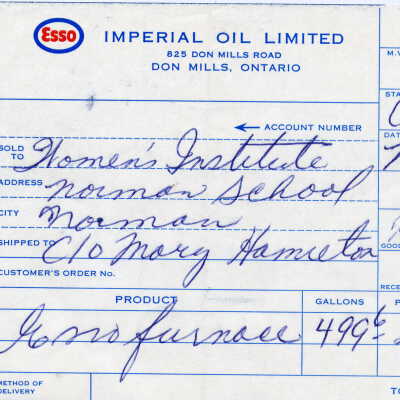 Esso IMPERIAL OIL LIMITED
825 DON MILLS ROAD
DON MILLS, ONTARIO
M.V
← ACCOUNT NUMBER
STA
SOLD TO Women's Institute
DAT
ADDRESS Norman School
CITY Norman
SHIPPED TO C/o Mary Hamilton
GOOD
CUSTOMER'S ORDER No.
RECE
PRODUCT GALLONS P
furnace 499
METHOD OF DELIVERY
TO